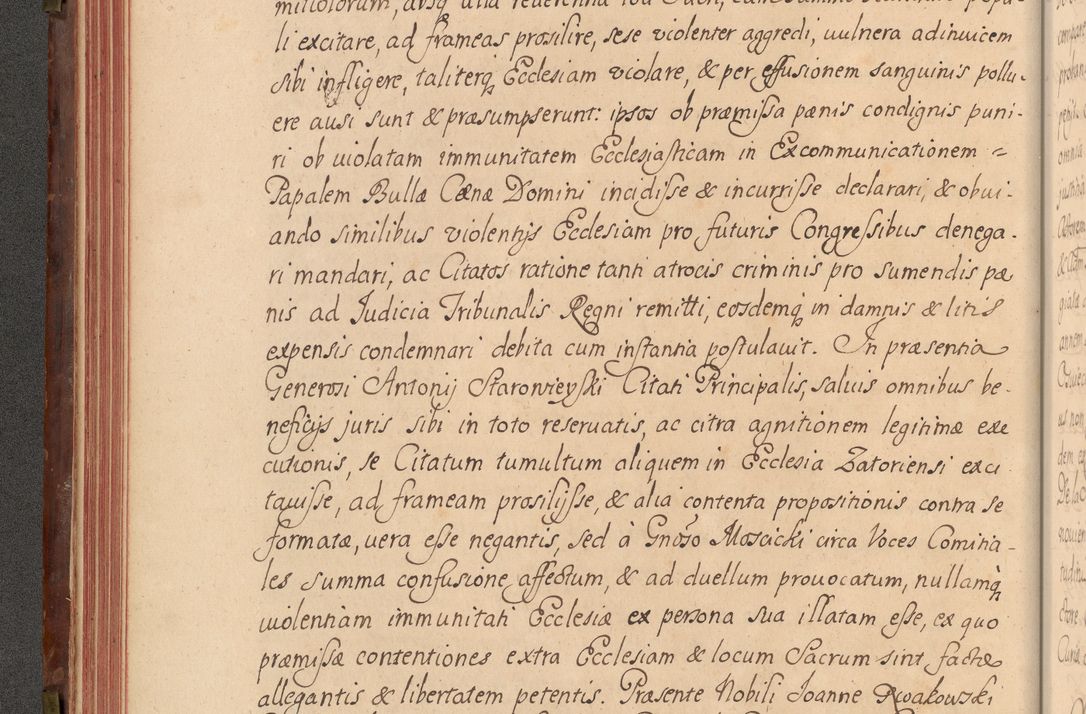 li excitare, ad frameas prosilire, sese violenter aggredi, vulnera adinuicem
sibi infligere, taliterq, Ecclesiam violare, & per effusionem sanguinis pollu-
ere ausi sunt & præsumpserunt: ipsos ob præmissa pænis condignis puni-
ri ob uiolatam immunitatem Ecclesiasticam in Excommunicationem =
Papalem Bullæ Cænæ Domini incidisse & incurrisse declarari, & obui-
ando similibus violentijs Ecclesiam pro futuris Congressibus denega-
ri mandari, ac Citatos ratione tanti atrocis criminis pro sumendis pæ
nis ad Judicia Tribunalis Regni remitti, eosdemq in damnis & litis
expensis condemnari debita cum instantia postulauit. In præsentia
Generosi Antonij Starowieyski Citati Principalis, saluis omnibus be-
neficijs juris sibi in toto reseruatis, ac citra agnitionem legitimæ exe
cutionis, se Citatum tumultum aliquem in Ecclesia Zatoriensi exci
tauisse, ad frameam prosilijsse, & alia contenta propositionis contra se
formatæ, uera esse negantis, sed à Gnoso Moscicki circa Voces Comitia-
les summa confusione affectum, & ad duellum prouocatum, nullamq
uiolentiam immunitati Ecclesiæ ex persona sua illatam esse, ex quo
præmissæ contentiones extra Ecclesiam & locum Sacrum sint factæ
allegantis & libertatem petentis. Præsente Nobili Joanne Rwakowski